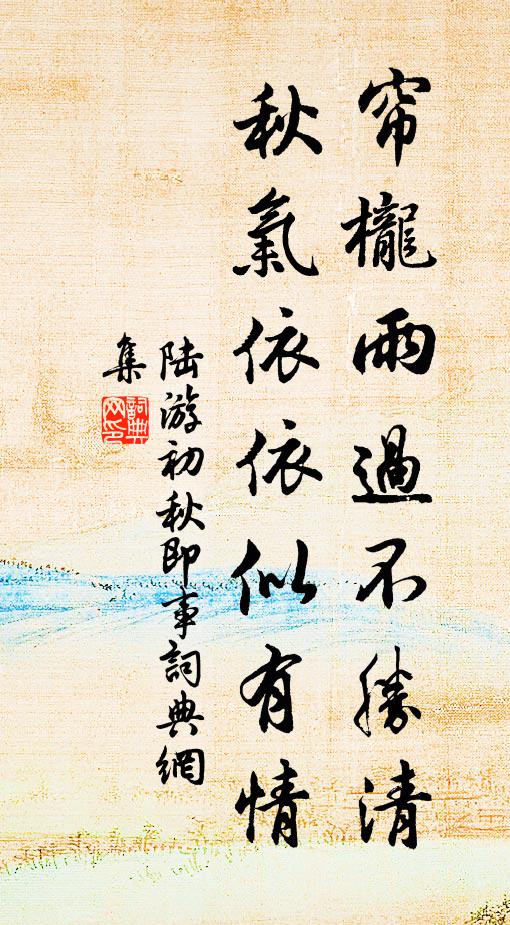 帘櫳雨過不勝清
秋氣依依似有情
陆游初秋即事詞典網
集
詞典
网印